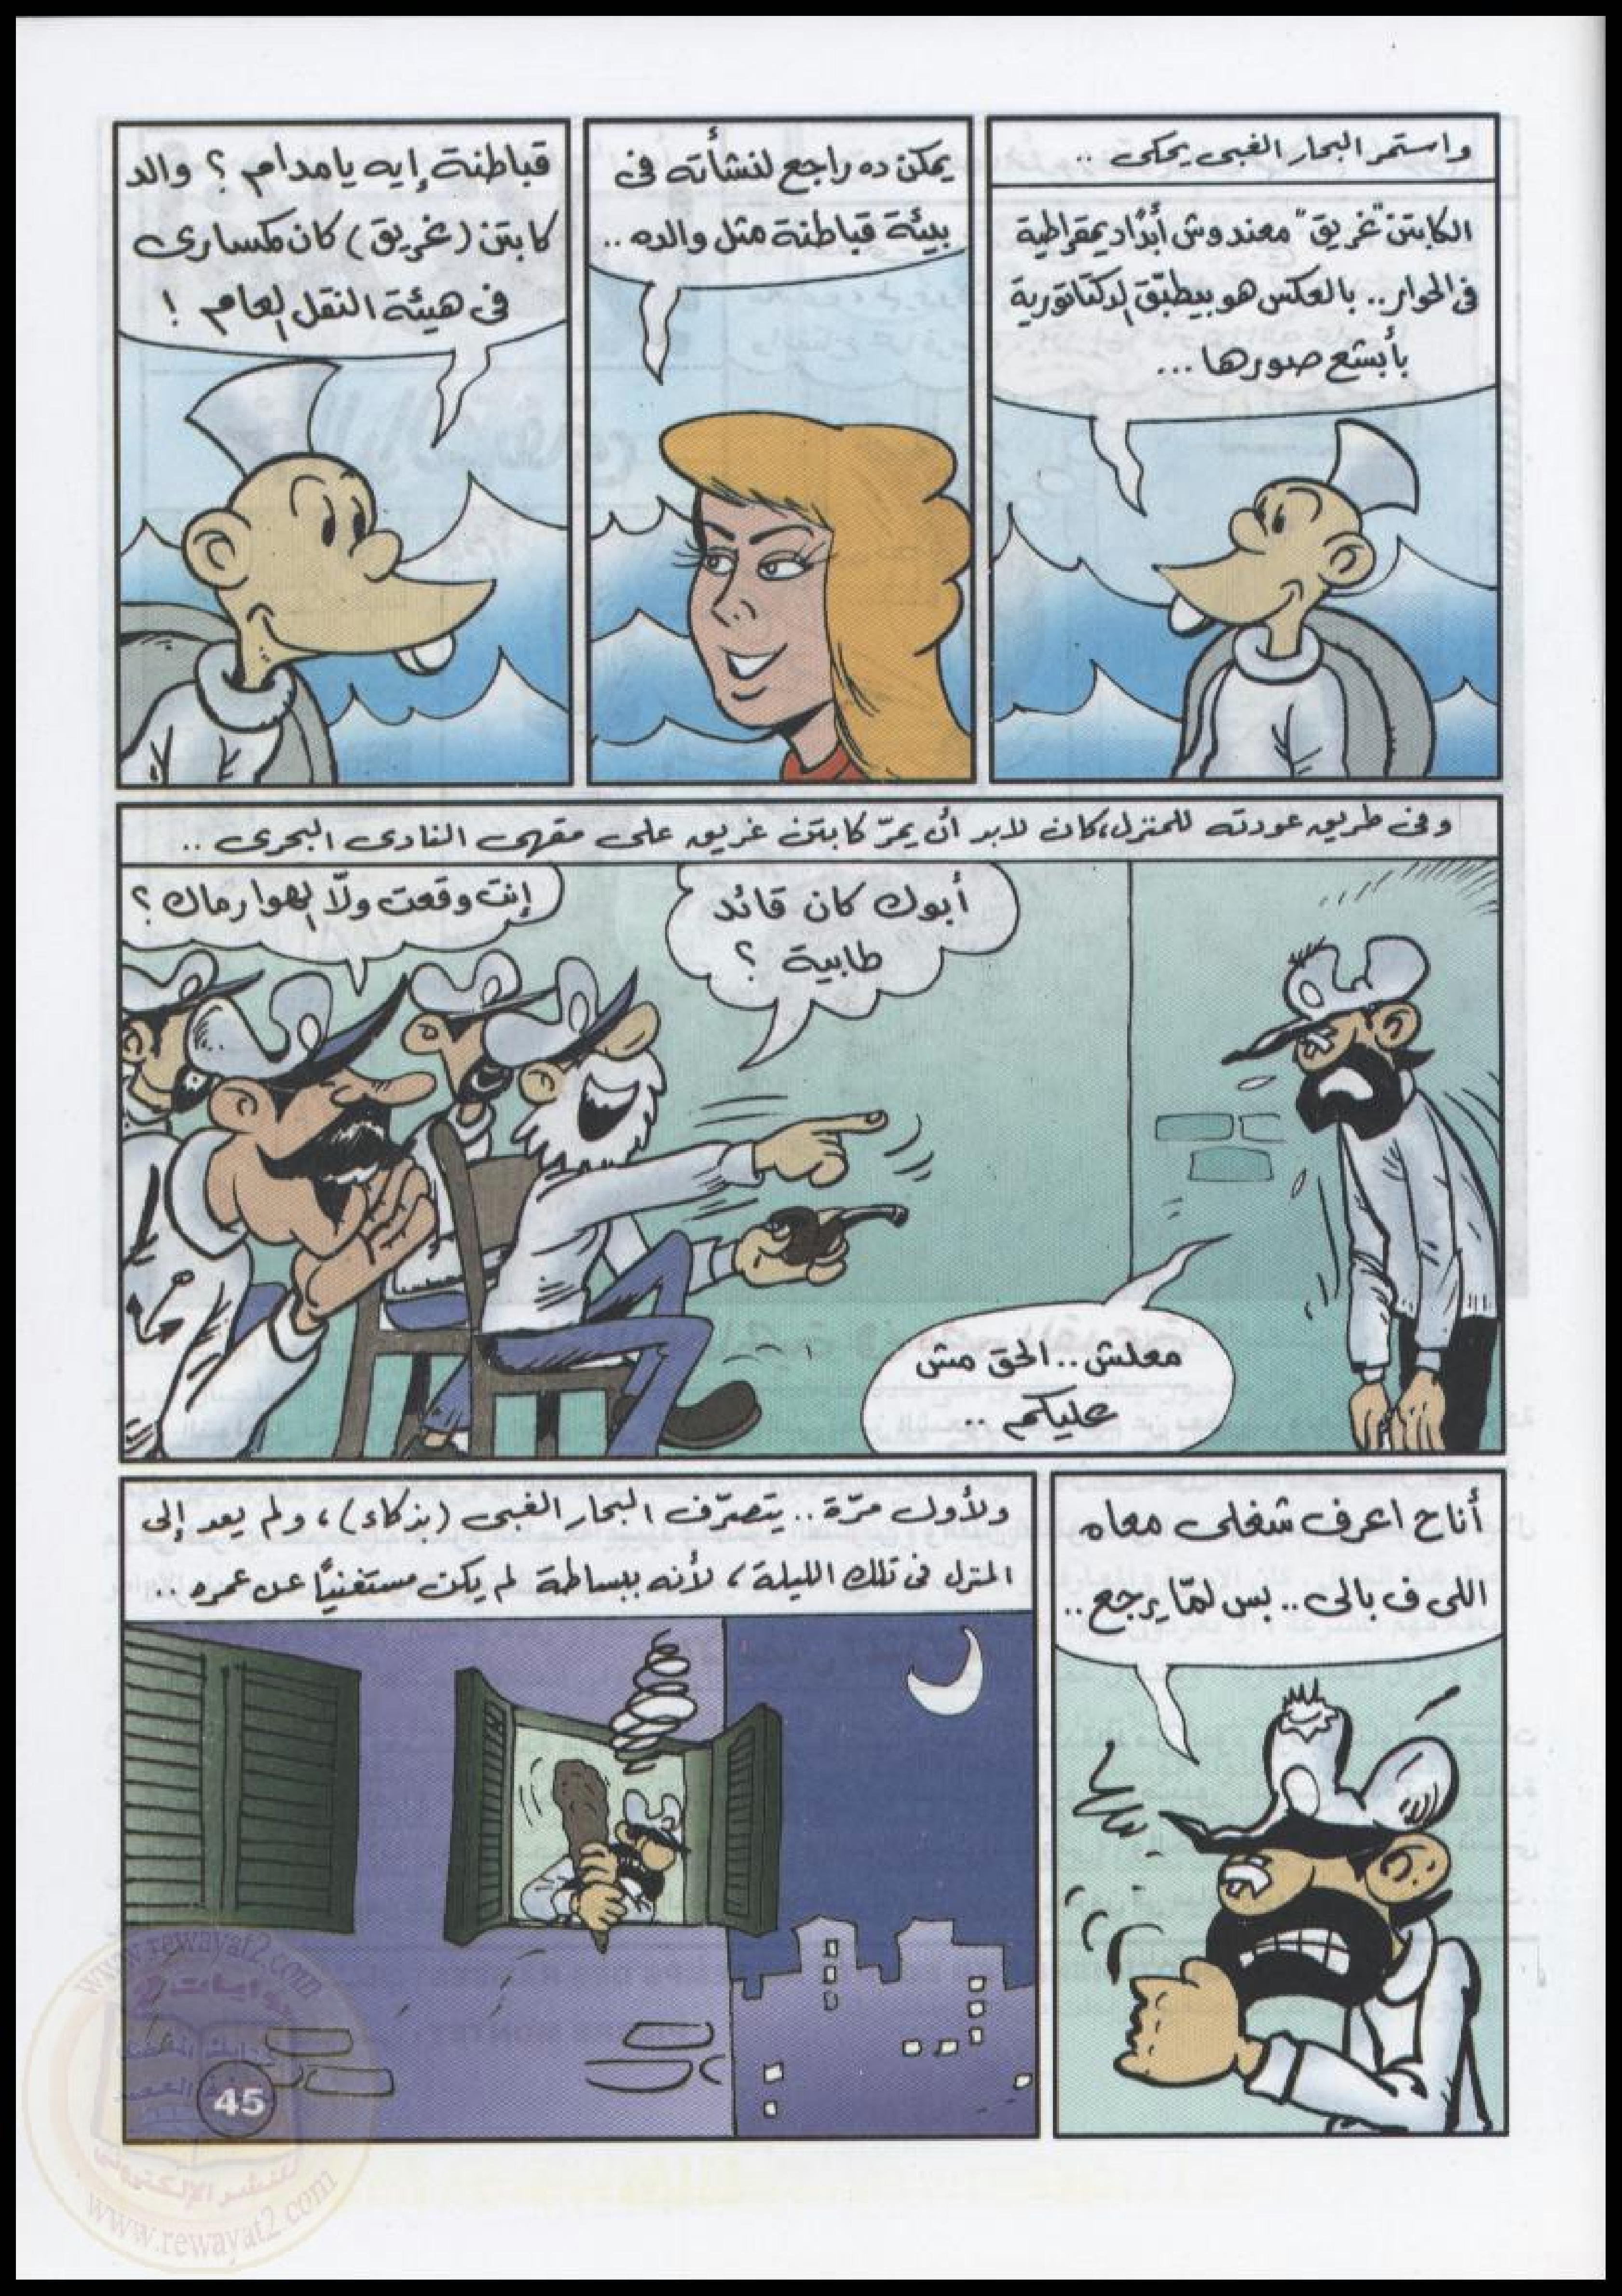 واستمر البحار الغبى يحكى ..
الكابتن "غريق" معندوش أبدًا ديمقراطية
فى الحوار .. بالعكس هو بيطبّق الدكتاتورية
بأبشع صورها ...
يمكن ده راجع لنشأته فى
بيئة قباطنة مثل والده ..
قباطنة إيه يا مدام ؟ والد
كابتن (غريق) كان كمسارى
فى هيئة النقل العام !
وفى طريق عودته للمنزل، كان لابد أن يمرّ كابتن غريق على مقهى النادى البحرى ..
أبوك كان قائد
طابية ؟
إنت وقعت ولّا الهوا رماك ؟
معلش .. الحق مش
عليكم ..
أناح اعرف شغلى معاه
اللى ف بالى .. بس لمّا يرجع ..
ولأول مرّة .. يتصرّف البحار الغبى (بذكاء)، ولم يعد إلى
المنزل فى تلك الليلة، لأنه ببساطة لم يكن مستغنيًا عن عمره ..
45
www.rewayat2.com
روايات 2
www.rewayat2.com